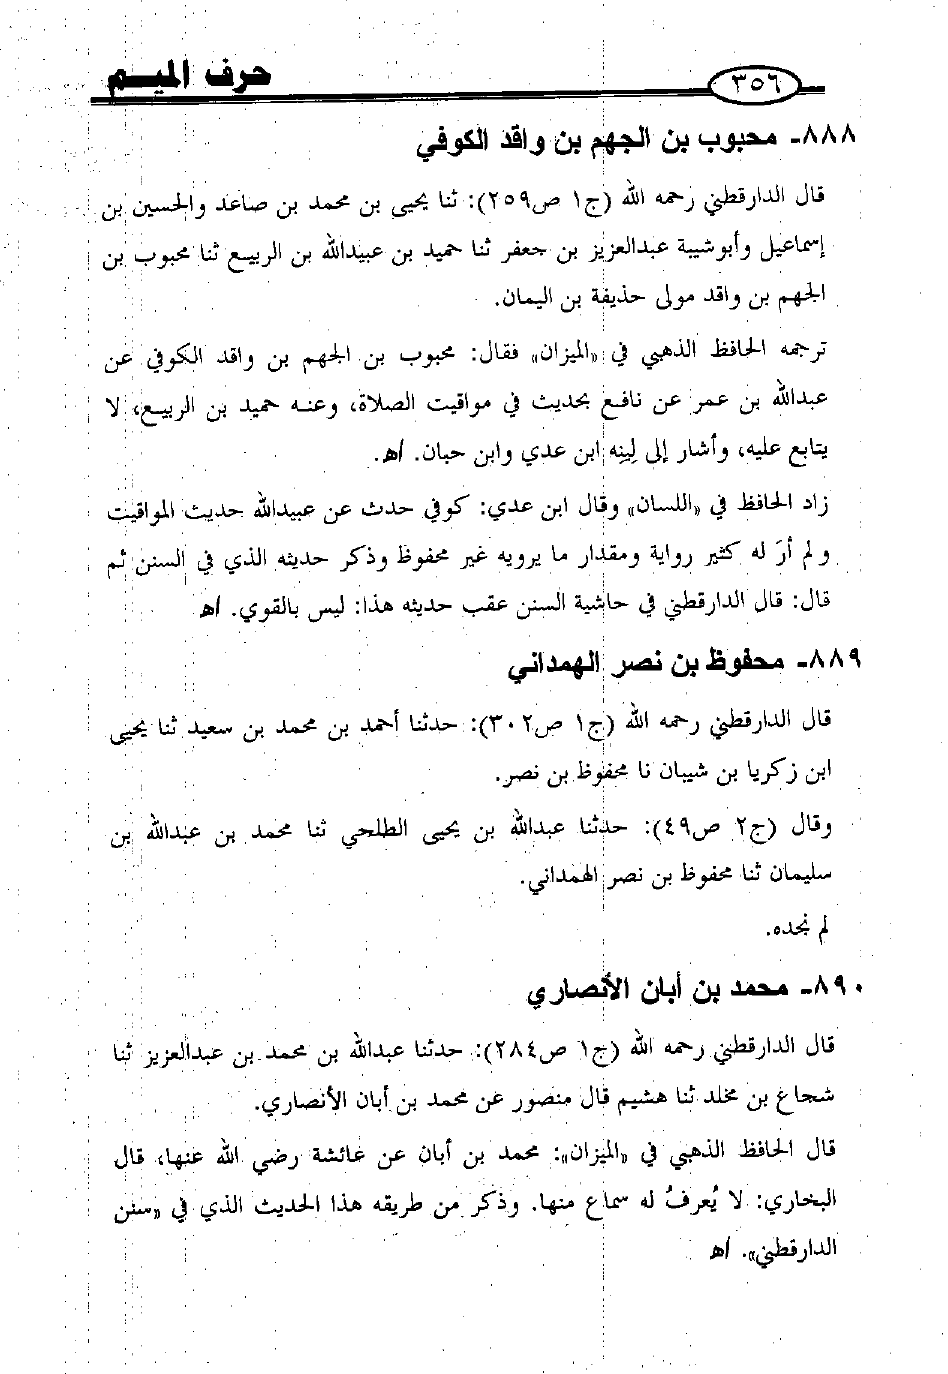 ٣٥٦ حرف الميم
٨٨٨- محبوب بن الجهم بن واقد الكوفي
قال الدارقطني رحمه الله (ج١ ص٢٥٩): ثنا يحيى بن محمد بن صاعد والحسين بن
إسماعيل وأبوشيبة عبدالعزيز بن جعفر ثنا حميد بن عبيدالله بن الربيع ثنا محبوب بن
الجهم بن واقد مولى حذيفة بن اليمان.
ترجمه الحافظ الذهبي في «الميزان» فقال: محبوب بن الجهم بن واقد الكوفي عن
عبدالله بن عمر عن نافع بحديث في مواقيت الصلاة، وعنه حميد بن الربيع، لا
يتابع عليه، وأشار إلى لِينِه ابن عدي وابن حبان. اهـ.
زاد الحافظ في «اللسان» وقال ابن عدي: كوفي حدث عن عبيدالله حديث المواقيت
ولم أرَ له كثير رواية ومقدار ما يرويه غير محفوظ وذكر حديثه الذي في السنن ثم
قال: قال الدارقطني في حاشية السنن عقب حديثه هذا: ليس بالقوي. اهـ
٨٨٩- محفوظ بن نصر الهمداني
قال الدارقطني رحمه الله (ج١ ص٣٠٢): حدثنا أحمد بن محمد بن سعيد ثنا يحيى
ابن زكريا بن شيبان نا محفوظ بن نصر.
وقال (ج٢ ص٤٩): حدثنا عبدالله بن يحيى الطلحي ثنا محمد بن عبدالله بن
سليمان ثنا محفوظ بن نصر الهمداني.
لم نجده.
٨٩٠- محمد بن أبان الأنصاري
قال الدارقطني رحمه الله (ج١ ص٢٨٤): حدثنا عبدالله بن محمد بن عبدالعزيز ثنا
شجاع بن مخلد ثنا هشيم قال منصور عن محمد بن أبان الأنصاري.
قال الحافظ الذهبي في «الميزان»: محمد بن أبان عن عائشة رضي الله عنها، قال
البخاري: لا يُعرفُ له سماع منها. وذكر من طريقه هذا الحديث الذي في «سنن
الدارقطني». اهـ